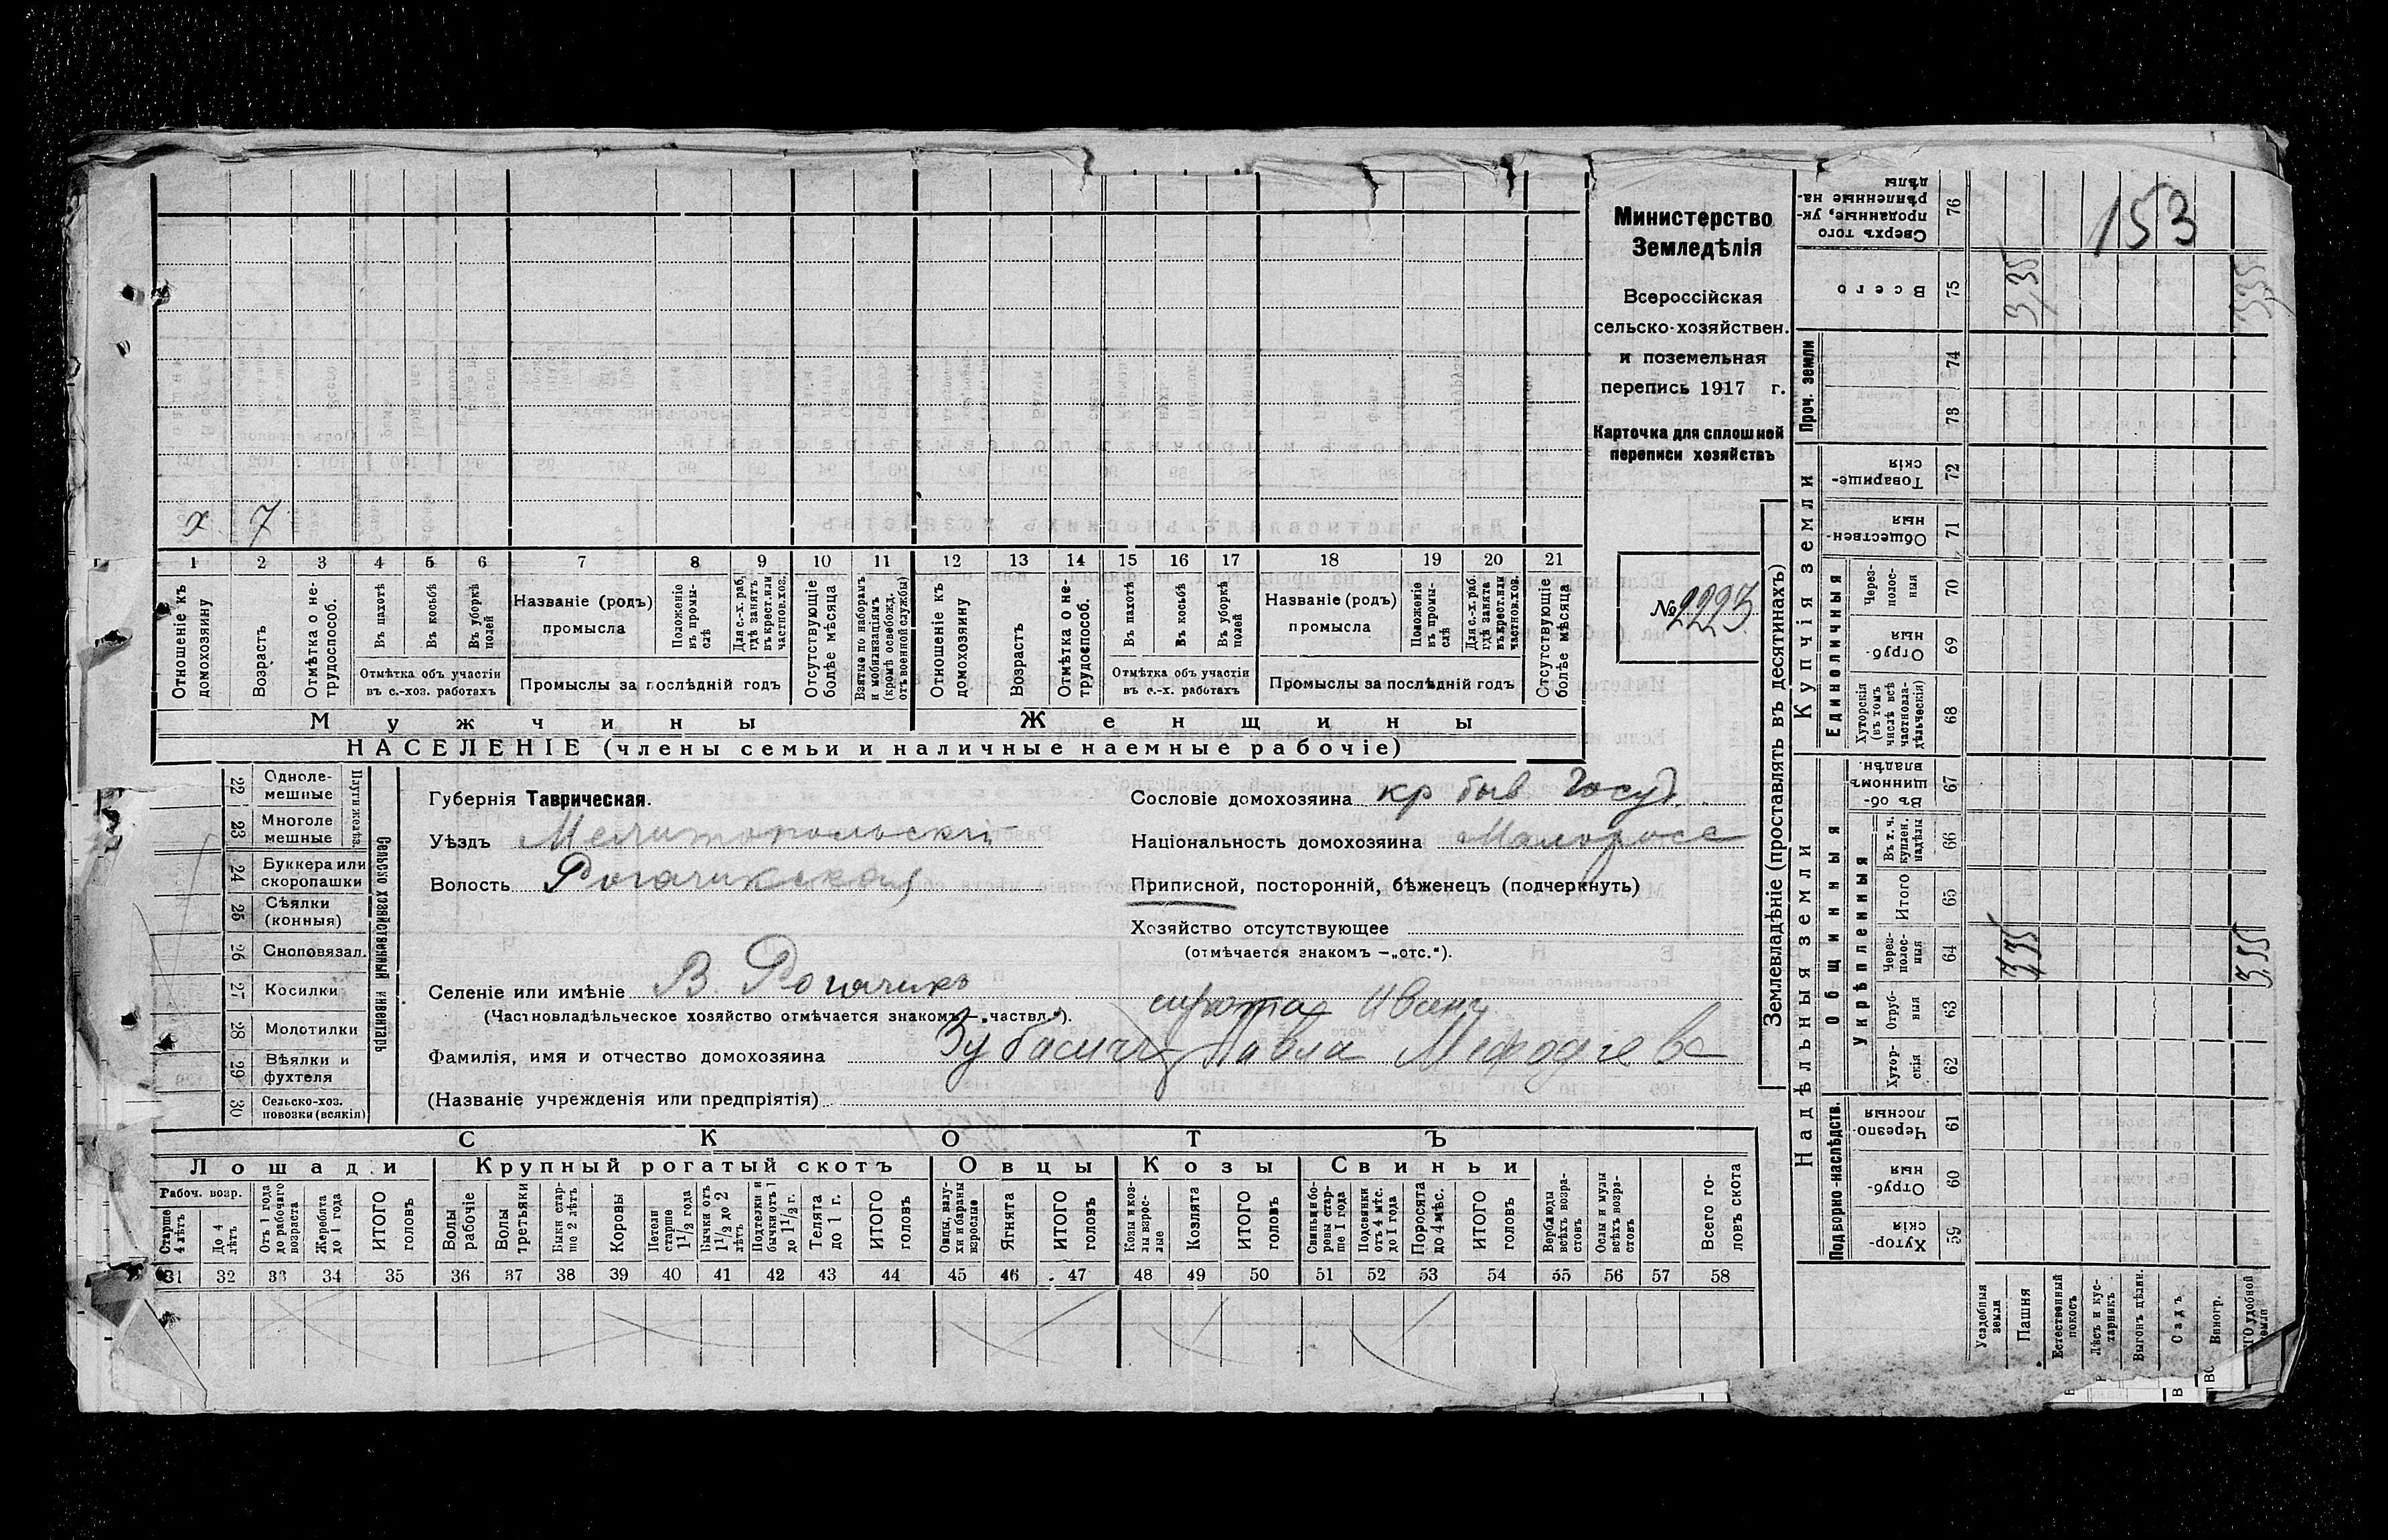 Министерство
Земледѣлія
Всероссійская
сельско-хозяйствен.
и поземельная
перепись 1917 г.
Карточка для сплошной
переписи хозяйствъ
№ 2223
х 7
1 2 3 4 5 6 7 8 9 10 11 12 13 14 15 16 17 18 19 20 21
Отношеніе къ домохозяину
Возрастъ
Отмѣтка о не-трудоспособ.
Въ пахотѣ
Въ косьбѣ
Въ уборкѣ полей
Отмѣтка объ участіи
въ с.-хоз. работахъ
Названіе (родъ)
промысла
Положеніе въ промы-слѣ
Для с.-х. раб. гдѣ занятъ въ крест. или частнов. хоз.
Промыслы за послѣдній годъ
Отсутствующіе болѣе мѣсяца
Взятые по наборамъ и мобилизаціямъ (кромѣ освобожд. отъ военной службы)
Отношеніе къ домохозяину
Возрастъ
Отмѣтка о не-трудоспособ.
Въ пахотѣ
Въ косьбѣ
Въ уборкѣ полей
Отмѣтка объ участіи
въ с.-х. работахъ
Названіе (родъ)
промысла
Положеніе въ промы-слѣ
Для с.-х. раб. гдѣ занята въ крест. или частнов. хоз.
Промыслы за послѣдній годъ
Отсутствующіе болѣе мѣсяца
Мужчины
Женщины
НАСЕЛЕНІЕ (члены семьи и наличные наемные рабочіе)
Сельско хозяйственный инвентарь
Плуги желѣз.
22 Одноле-мешные
23 Многоле мешные
24 Буккера или скоропашки
25 Сѣялки (конныя)
26 Сноповязал.
27 Косилки
28 Молотилки
29 Вѣялки и фухтеля
30 Сельско-хоз. повозки (всякія)
Губернія Таврическая.
Уѣздъ Мелитопольскій
Волость Рогачикская
Селеніе или имѣніе В. Рогачикъ
(Частновладѣльческое хозяйство отмѣчается знакомъ — „частвл.").
Сословіе домохозяина кр быв Госуд.
Національность домохозяина Малороссъ
Приписной, посторонній, бѣженецъ (подчеркнуть)
Хозяйство отсутствующее
(отмѣчается знакомъ —„отс.").
сирота Иванъ
Фамилія, имя и отчество домохозяина Павла Мефодіева
(Названіе учрежденія или предпріятія)
СКОТЪ
Лошади
Крупный рогатый скотъ
Овцы
Козы
Свиньи
Рабоч. возр.
Старше 4 лѣтъ
До 4 лѣтъ
Отъ 1 года до рабочаго возраста
Жеребята до 1 года
ИТОГО головъ
Волы рабочіе
Волы третьяки
Быки стар-ше 2 лѣтъ
Коровы
Нетели старше 1½ года
Бычки отъ 1½ до 2 лѣтъ
Подтелки и бычки отъ 1 до 1½ г.
Телята до 1 г.
ИТОГО головъ
Овцы, валу-хи и бараны взрослые
Ягнята
ИТОГО головъ
Козы и коз-лы взрос-лые
Козлята
ИТОГО головъ
Свиньи и бо-ровы стар-ше 1 года
Подсвинки отъ 4 мѣс. до 1 года
Поросята до 4 мѣс.
ИТОГО головъ
Верблюды всѣхъ возра-стовъ
Ослы и мулы всѣхъ возра-стовъ
Всего го-ловъ скота
31 32 33 34 35 36 37 38 39 40 41 42 43 44 45 46 47 48 49 50 51 52 53 54 55 56 57 58
Землевладѣніе (проставлять въ десятинахъ)
Надѣльныя земли
Купчія земли
Проч. земли
Подворно-наслѣдств.
Общинныя
Укрѣпленныя
Единоличныя
Сверхъ того проданные, ук-рѣпленные на-дѣлы 76
153
Всего 75
3,35
335
74
73
Товарище-скія 72
Обществен-ныя 71
Через-полос-ныя 70
Отруб-ныя 69
Хуторскія (въ томъ числѣ всѣ частновла-дѣльческія) 68
Въ об-щинномъ владѣн. 67
Въ т. ч. купчен. надѣлы 66
Итого 65
Через-полос-ныя 64
3,35
3,35
Отруб-ныя 63
Хутор-скія 62
Черезпо-лосныя 61
Отруб-ныя 60
Хутор-скія 59
Усадебныя земли
Пашня
Естественный покосъ
Лѣсъ и кус-тарникъ
Выгонъ цѣлин.
Садъ
Виногр.